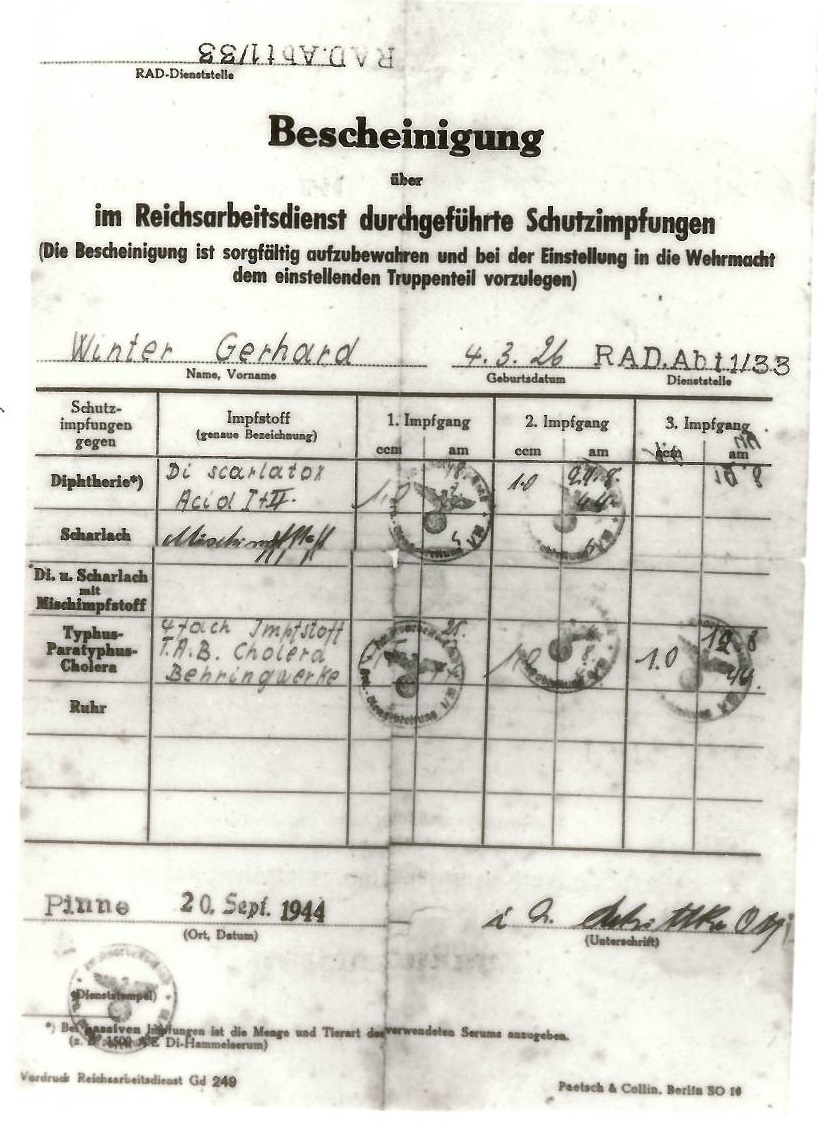 RAD.Abt1/33
RAD-Dienststelle
Bescheinigung
über
im Reichsarbeitsdienst durchgeführte Schutzimpfungen
(Die Bescheinigung ist sorgfältig aufzubewahren und bei der Einstellung in die Wehrmacht
dem einstellenden Truppenteil vorzulegen)
Winter Gerhard 4.3.26 RAD.Abt1/33
Name, Vorname Geburtsdatum Dienststelle
Schutz-
impfungen
gegen
Impfstoff
(genaue Bezeichnung)
1. Impfgang 2. Impfgang 3. Impfgang
ccm am ccm am ccm am
Diphtherie*)
Di scarlatox
Acid I+II.
1,0 1.0
Scharlach Mischimpfstoff
Di. u. Scharlach
mit
Mischimpfstoff
Typhus-
Paratyphus-
Cholera
4fach Impfstoff
T.A.B. Cholera
Behringwerke
1.0 12 8
44.
Ruhr
Pinne 20. Sept. 1944
(Ort, Datum) (Unterschrift)
(Dienststempel)
*) Bei passiven Impfungen ist die Menge und Tierart des verwendeten Serums anzugeben.
(z. B. 1500 AE Di-Hammelserum)
Vordruck Reichsarbeitsdienst Gd 249 Paetsch & Collin, Berlin SO 16